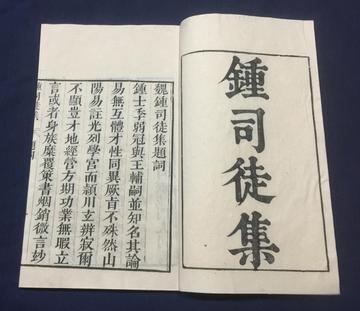 鍾司徒集
魏鍾司徒集題詞
鍾士季弱冠與王輔嗣並知名其論
易無互體才性同異厥旨不殊然山
陽易註光列學宮而潁川玄辨寂爾
不顯豈才地經營方期功業無暇立
言或者身族糜覆策書烟銷微言妙